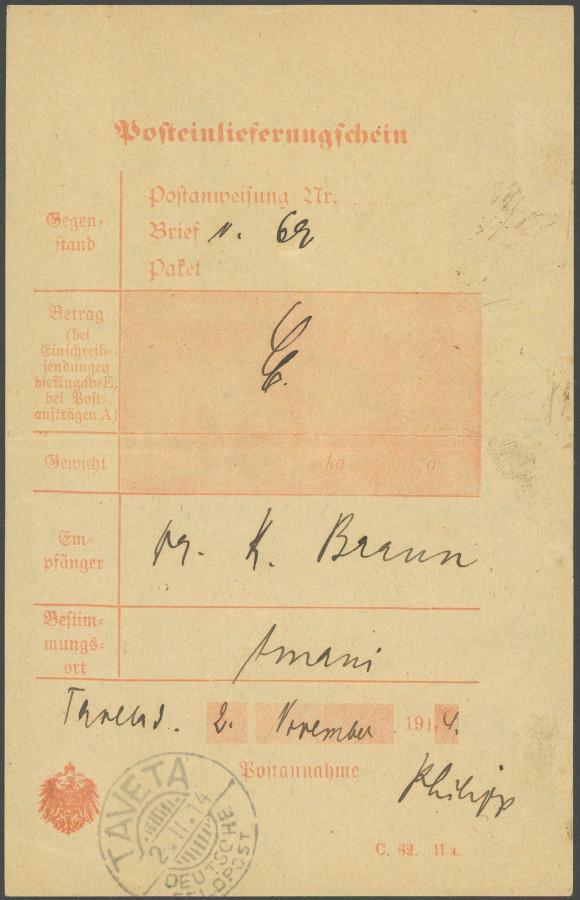 Posteinlieferungschein
Gegen-
stand
Postanweisung Nr.
Brief n. 62
Paket
Betrag
(bei
Einschreib-
sendungen
die Angabe E,
bei Post-
aufträgen A)
E.
Gewicht
kg g
Em-
pfänger
Dr. K. Braun
Bestim-
mungs-
ort
Amani
Taveta. 2. November 1914.
Postannahme
Philipp
TAVETA
2.11.14
DEUTSCHE
FELDPOST
C. 62. IIa.